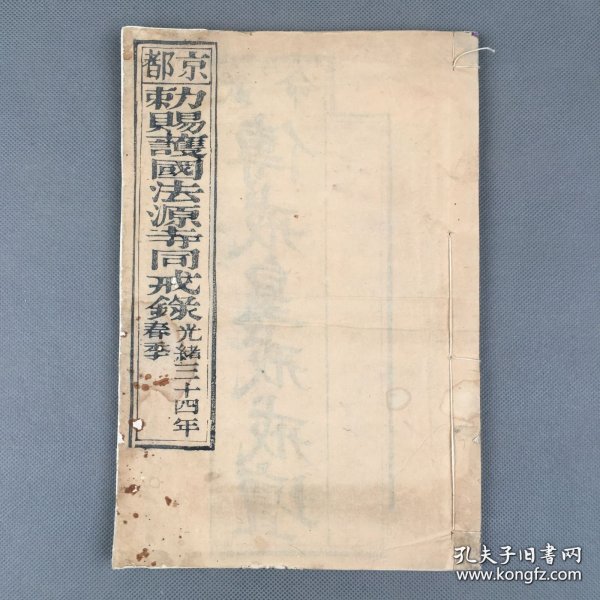 京都
勅賜護國法源寺同戒錄
光緒三十四年
春季
孔夫子旧书网
www.kongfz.com